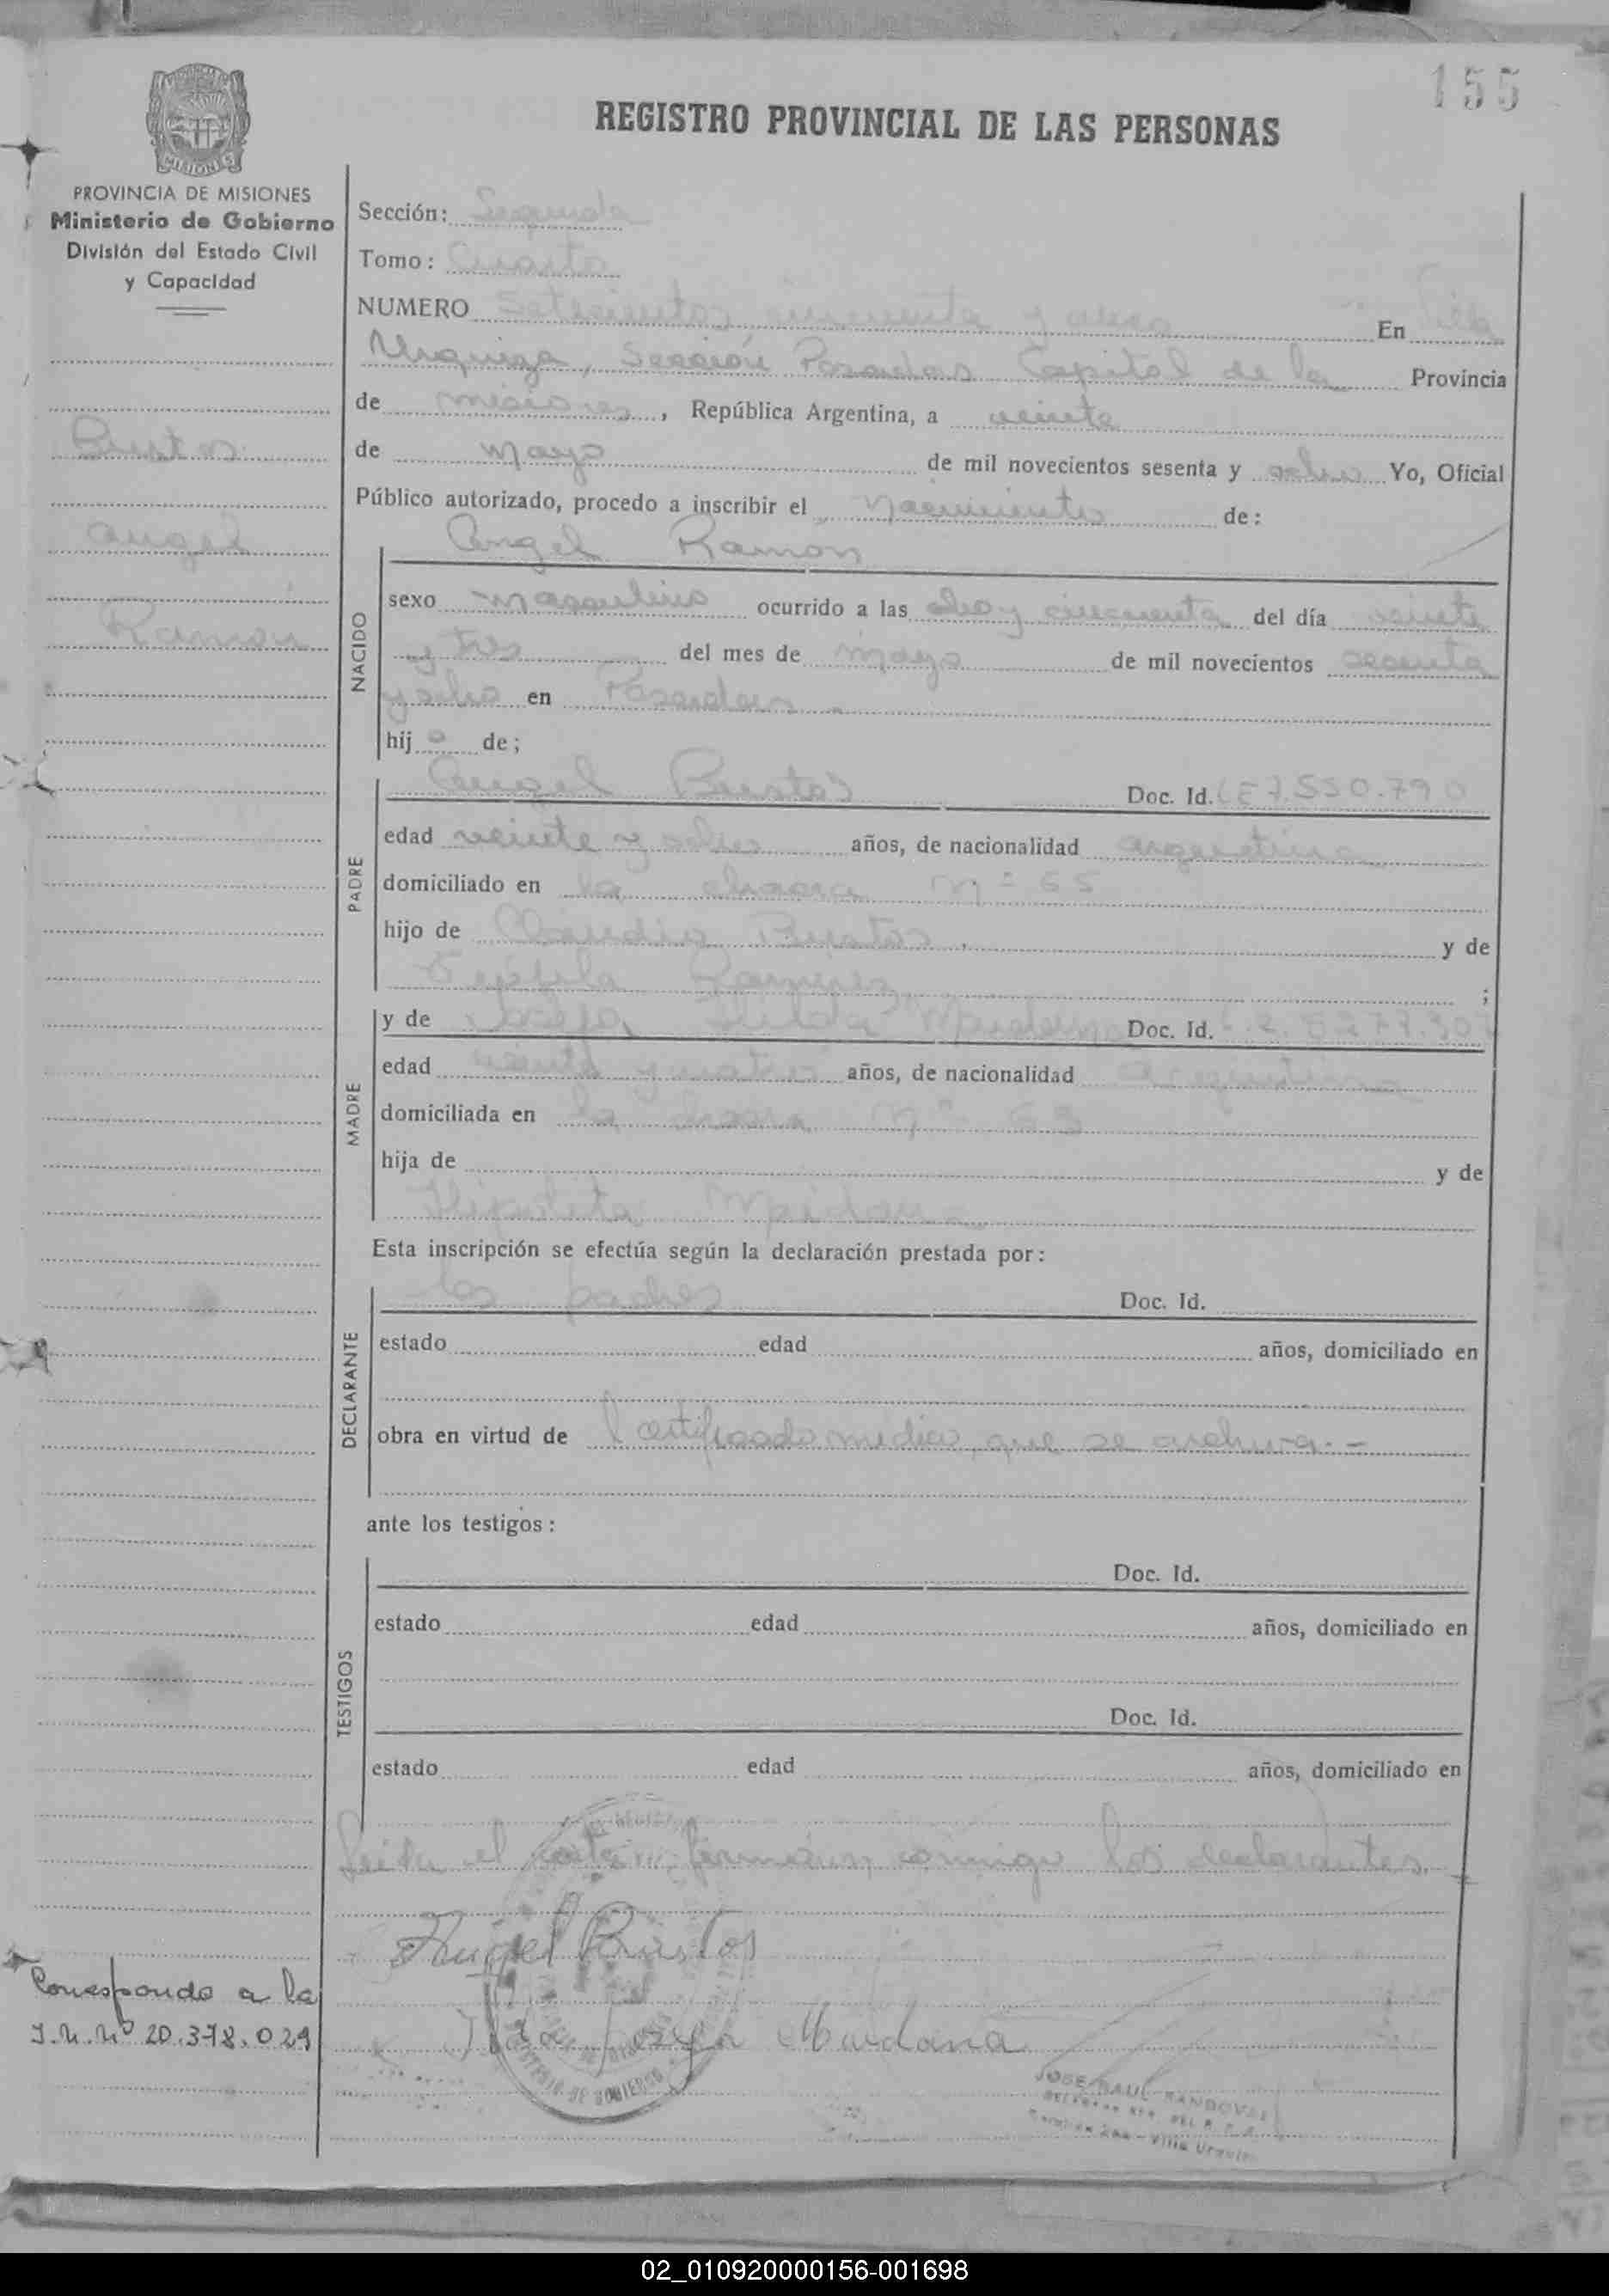 155
PROVINCIA DE MISIONES
Ministerio de Gobierno
División del Estado Civil
y Capacidad
REGISTRO PROVINCIAL DE LAS PERSONAS
Sección: Segunda
Tomo: Cuarto
NUMERO Setecientos cincuenta y En Villa
Urquiza, Sección Posadas Capital de la Provincia
de misiones, República Argentina, a veinte
de mayo de mil novecientos sesenta y ocho Yo, Oficial
Público autorizado, procedo a inscribir el Nacimiento de:
Bustos
Angel
Ramon
NACIDO
Angel Ramon
sexo masculino ocurrido a las ocho y cincuenta del día veinte
y tres del mes de mayo de mil novecientos sesenta
y ocho en Posadas.
hijo de;
PADRE
Angel Bustos Doc. Id. 7.550.790
edad veinte y ocho años, de nacionalidad argentina
domiciliado en la chacra Nº 65
hijo de Claudio Bustos y de
Ramirez ;
MADRE
y de Josefa Ilda Maidana Doc. Id.
edad veinte y cuatro años, de nacionalidad argentina
domiciliada en la chacra Nº 65
hija de y de
Hipolita Maidana
Esta inscripción se efectúa según la declaración prestada por:
DECLARANTE
los padres Doc. Id.
estado edad años, domiciliado en
obra en virtud de l certificado medico, que se archiva.-
ante los testigos:
TESTIGOS
Doc. Id.
estado edad años, domiciliado en
Doc. Id.
estado edad años, domiciliado en
Leida el acta, firmaron conmigo los declarantes.
Angel Bustos
Corresponde a la
I.M.Nº 20.378.029
Maidana
MINISTERIO DE GOBIERNO
JOSE RAUL SANDOVAL
Villa Urquiza
02_010920000156-001698